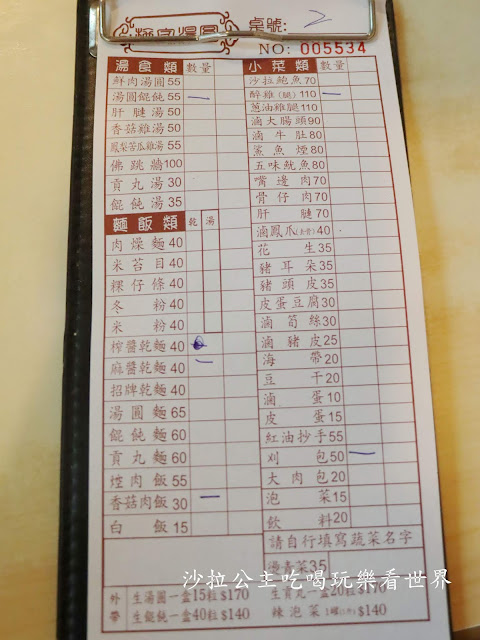 桌號: 2
NO: 005534
湯食類 數量
鮮肉湯圓 55
湯圓餛飩 55 一
肝腱湯 50
香菇雞湯 50
鳳梨苦瓜雞湯 55
佛跳牆 100
貢丸湯 30
餛飩湯 35
麵飯類 乾 湯
肉燥麵 40
米苔目 40
粿仔條 40
冬粉 40
米粉 40
榨醬乾麵 40
麻醬乾麵 40 一
招牌乾麵 40
湯圓麵 65
餛飩麵 60
貢丸麵 60
焢肉飯 55
香菇肉飯 30 一
白飯 15
小菜類 數量
沙拉鮑魚 70
醉雞(腿) 110 一
蔥油雞腿 110
滷大腸頭 90
滷牛肚 80
鯊魚煙 80
五味魷魚 80
嘴邊肉 70
骨仔肉 70
肝腱 70
滷鳳爪(去骨) 40
花生 35
豬耳朵 35
豬頭皮 35
皮蛋豆腐 30
滷筍絲 30
滷豬皮 25
海帶 20
豆干 20
滷蛋 10
皮蛋 15
紅油抄手 55
刈包 50 一
大肉包 20
泡菜 15
飲料 20
請自行填寫蔬菜名字
燙青菜 35
外帶
生湯圓一盒15粒$170
生餛飩一盒40粒$140
生貢丸一盒20粒$170
辣泡菜 $140
沙拉公主吃喝玩樂看世界